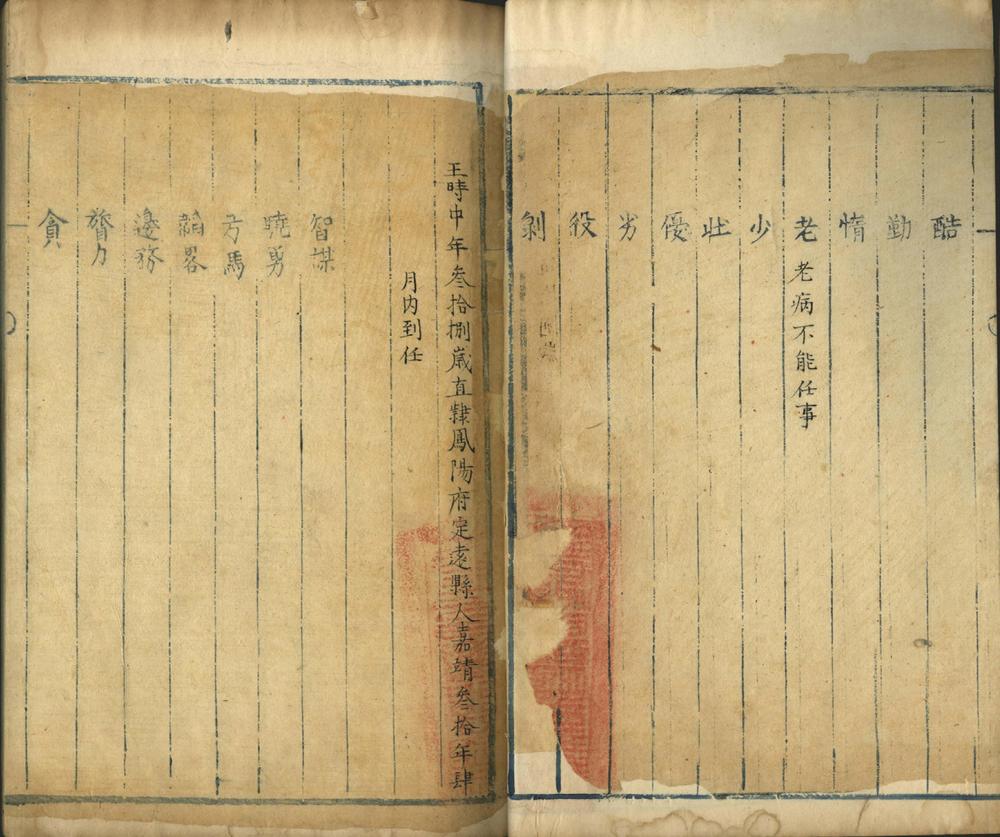 酷
勤
惰
老 老病不能任事
少
壯
優
劣
役
剝
王時中年叁拾捌歲直隸鳳陽府定遠縣人嘉靖叁拾年肆
月內到任
智謀
驍勇
弓馬
韜畧
邊務
膂力
貪